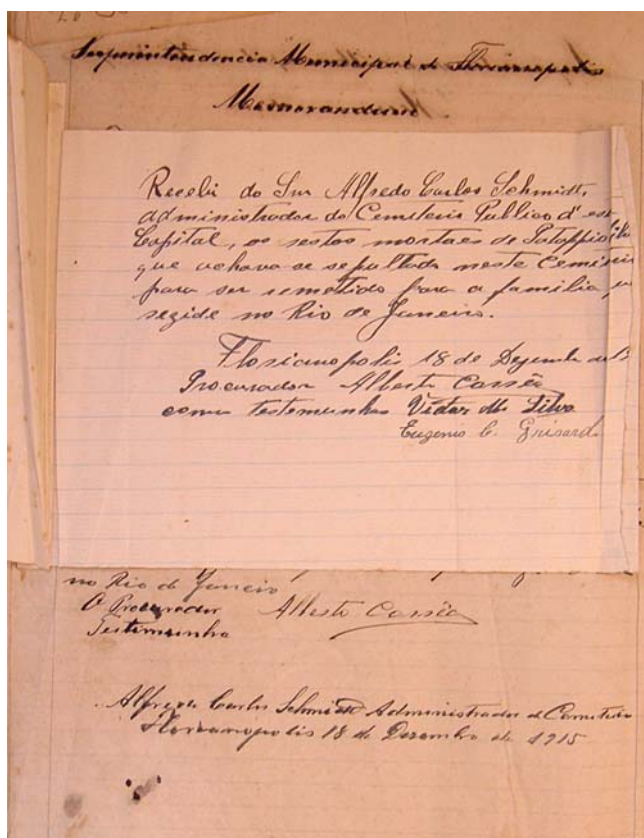 Superintendencia Municipal de Florianopolis
Memorandum
Recebi do Snr Alfredo Carlos Schmidt,
administrador do Cemeterio Publico d'
Capital, os restos mortaes de Patappio
que achava-se sepultado neste
para ser remetido para a familia,
rezide no Rio de Janeiro.
Florianopolis 18 de Dezembro
Procurador Alberto Corrêa
como testemunhas Vidar M. Silva
Eugenio C. Grisard
no Rio de Janeiro
O Procurador Alberto Corrêa
Testemunha
Alfredo Carlos Schmidt Administrador do Cemeterio
Florianopolis 18 de Dezembro de 1915